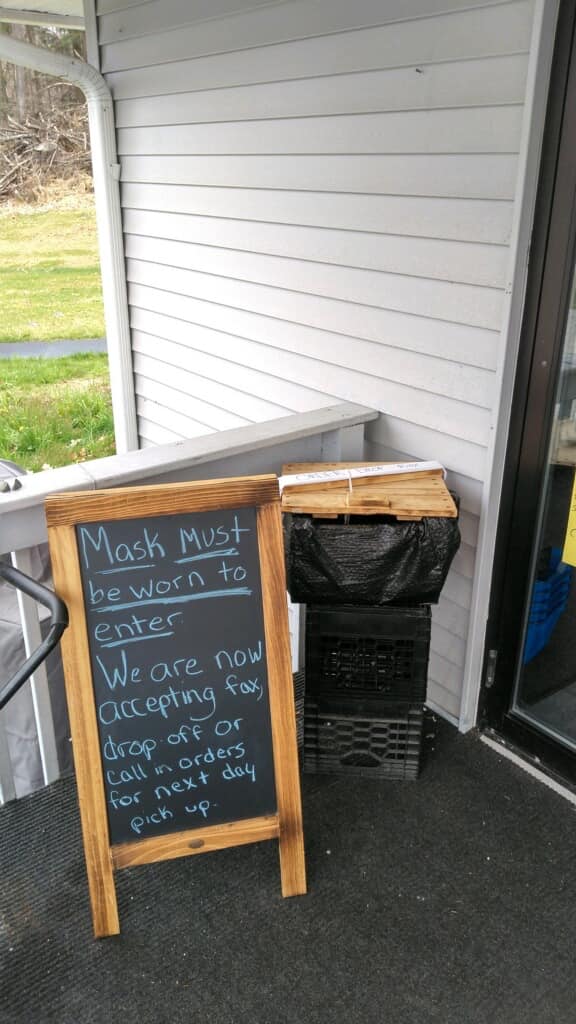 Mask Must
be worn to
enter.
We are now
accepting fax,
drop off or
call in orders
for next day
pick up.
ORDER DROP BOX